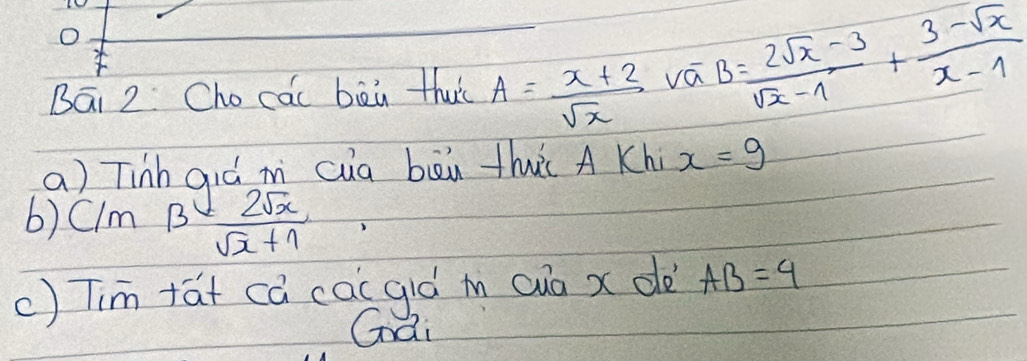 0
Bài 2: Cho các biểu thức A = \frac{x+2}{\sqrt{x}} và B = \frac{2\sqrt{x}-3}{\sqrt{x}-1} + \frac{3-\sqrt{x}}{x-1}
a) Tính giá trị của biểu thức A Khi x = 9
b) C/m B = \frac{2\sqrt{x}}{\sqrt{x}+1}
c) Tìm tất cả các giá trị của x để AB = 4
Giải